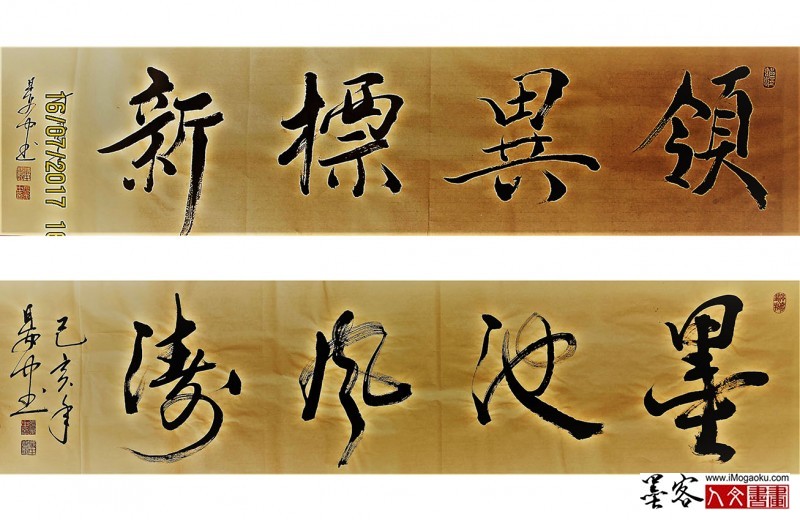 領異標新
16/07/2017
墨池風濤
己亥年
墨客
www.iMogaoku.com
人文書畫